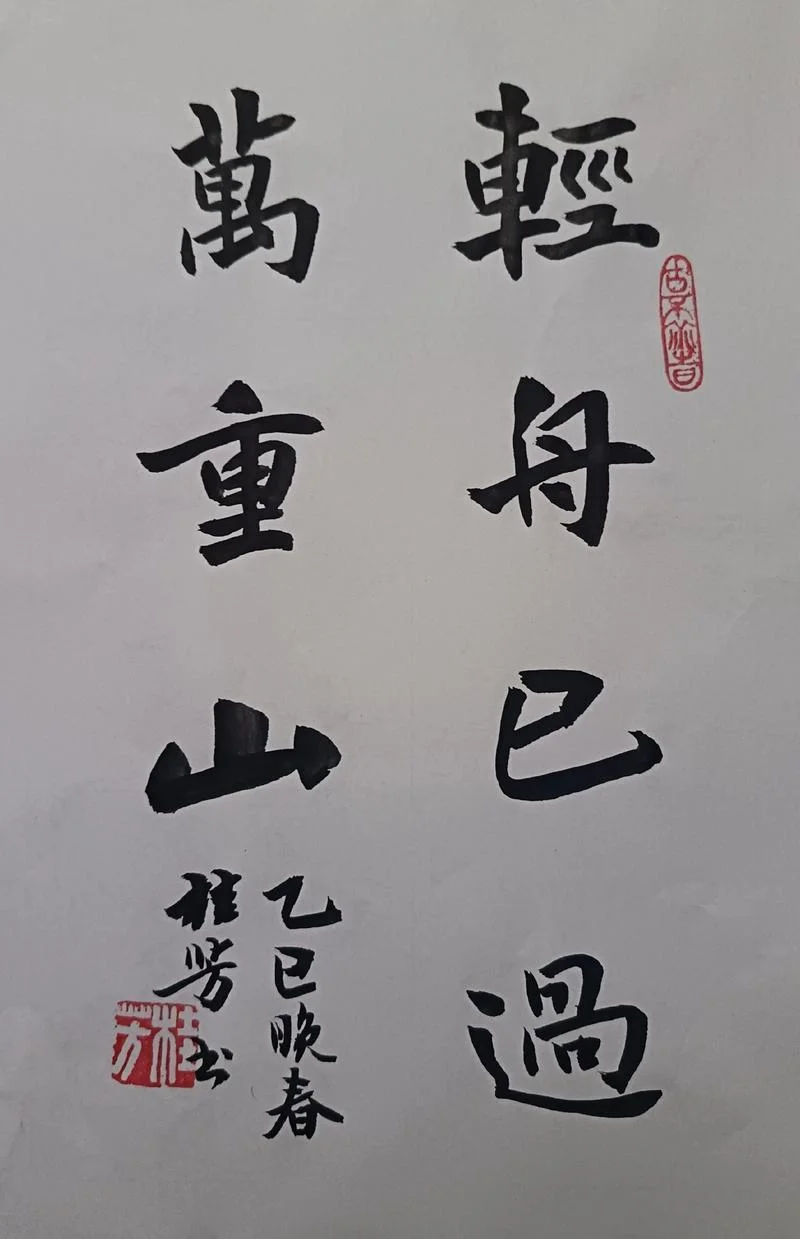 輕舟已過
萬重山
乙巳晚春
桂芳书
桂芳